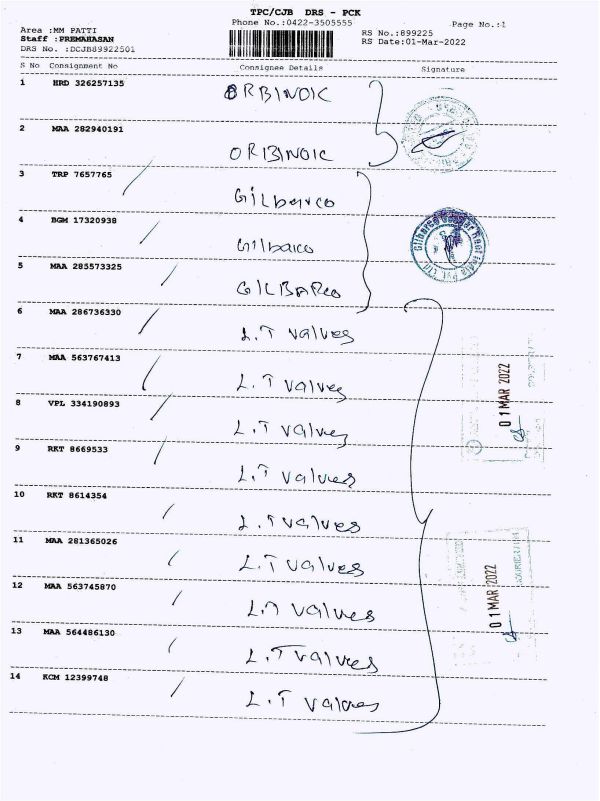 TPC/CJB DRS - PCK
Phone No.:0422-3505555 Page No.:1
Area :MM PATTI RS No.:899225
Staff :PREMAHASAN RS Date:01-Mar-2022
DRS No. :DCJB89922501
S No Consignment No Consignee Details Signature
1 HRD 326257135 ORBINOIC
2 MAA 282940191 ORBINOIC
3 TRP 7657765 Gilbarco
4 BGM 17320938 Gilbarco
5 MAA 285573325 GILBARCO
Gilbarco Veeder Root India Pvt. Ltd
6 MAA 286736330 L.T valves
7 MAA 563767413 L.T valves
01 MAR 2022
8 VPL 334190893 L.T valves
9 RKT 8669533 L.T valves
10 RKT 8614354 L.T valves
11 MAA 281365026 L.T valves
12 MAA 563745870 L.T valves
01 MAR 2022
13 MAA 564486130 L.T valves
14 KCM 12399748 L.T valves